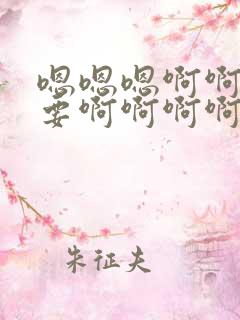 嗯嗯嗯啊啊
要啊啊啊啊
朱征夫